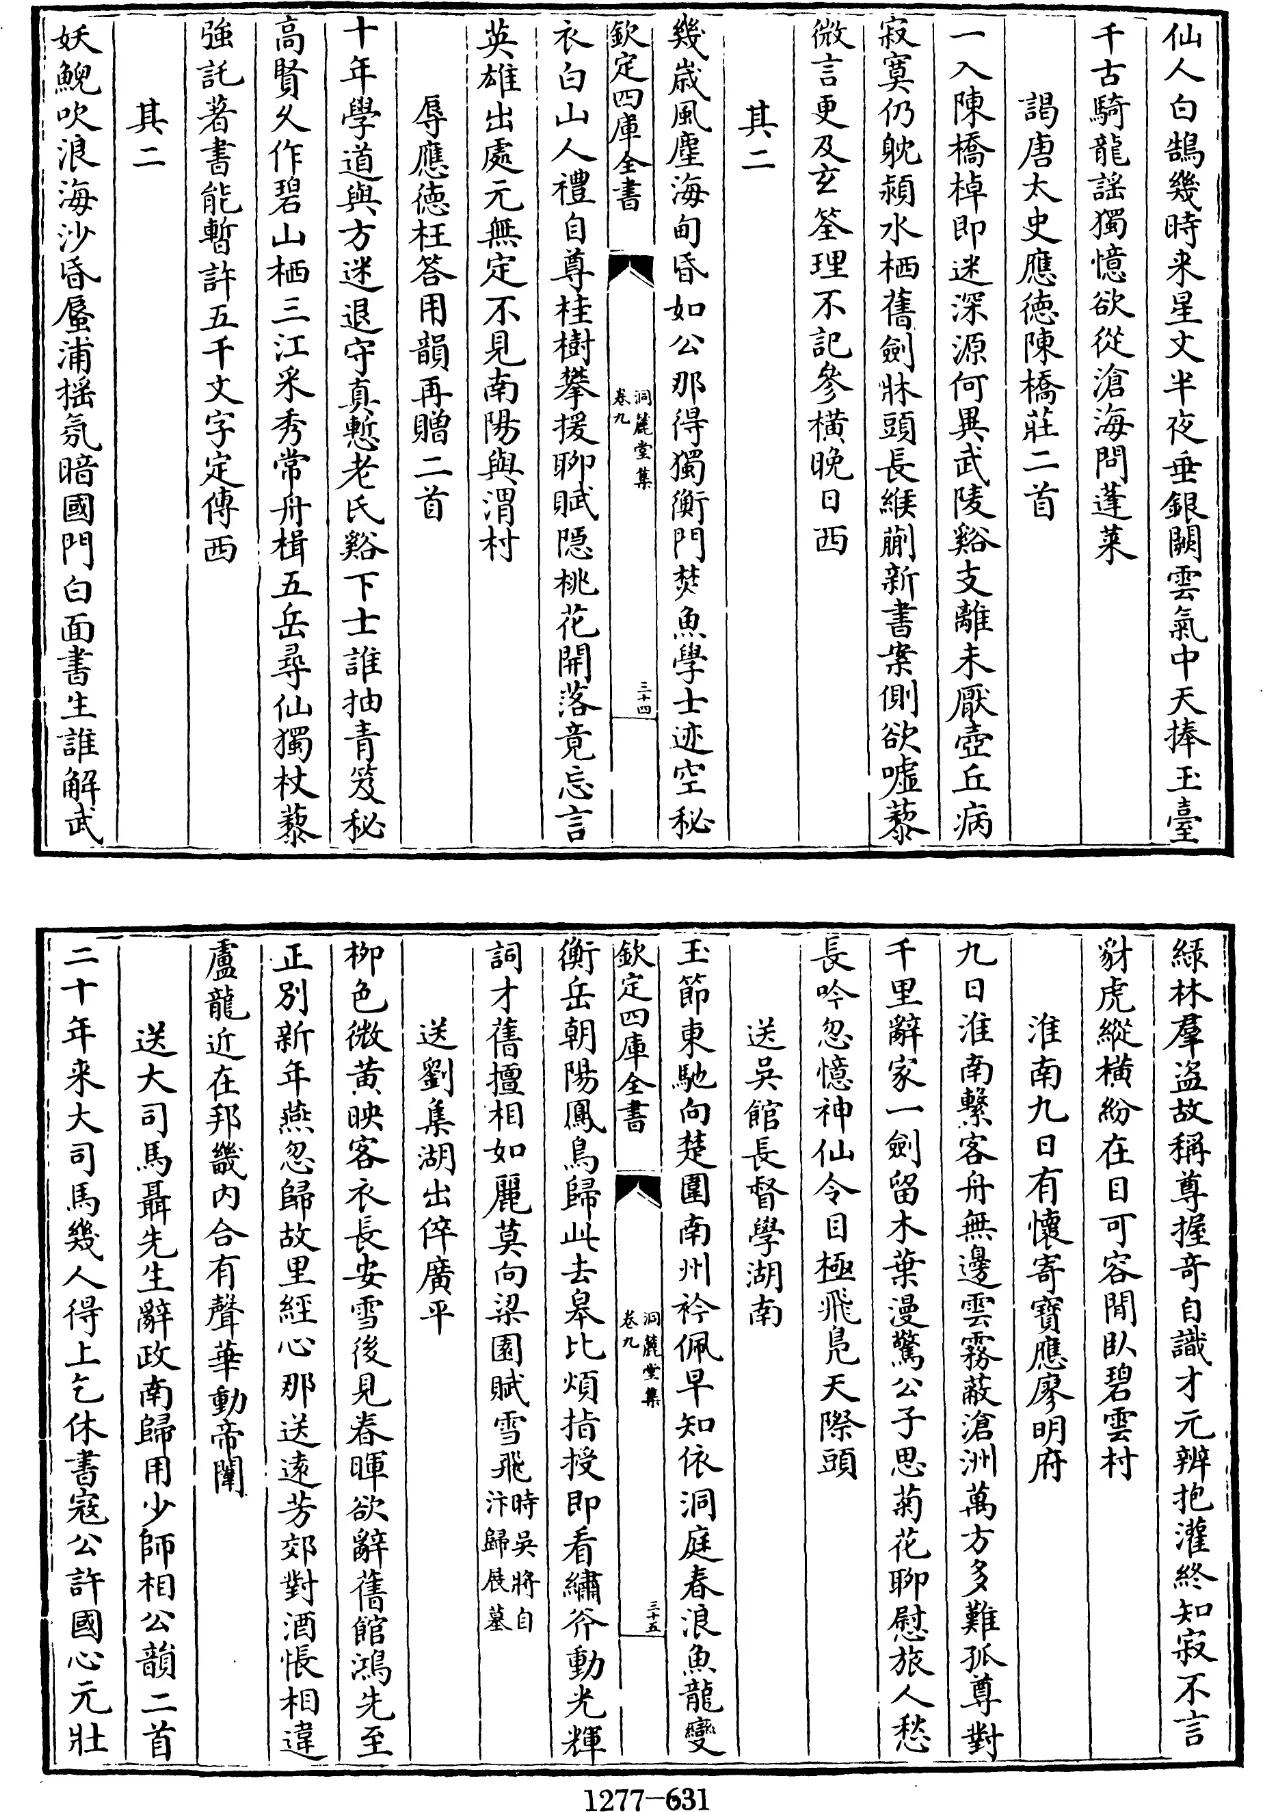 仙人白鵠幾時来星文半夜垂銀闕雲氣中天捧玉臺
千古騎龍謡獨憶欲從滄海問蓬萊
謁唐太史應德陳橋莊二首
一入陳橋棹即迷深源何異武陵谿支離未厭壺丘病
寂寞仍躭潁水栖舊劍牀頭長緱蒯新書案側欲嘘藜
微言更及玄筌理不記參横晚日西
其二
幾歳風塵海甸昏如公那得獨衡門焚魚學士迹空秘
欽定四庫全書
洞麓堂集
卷九
三十四
衣白山人禮自尊桂樹攀援聊賦隠桃花開落竟忘言
英雄出處元無定不見南陽與渭村
辱應德枉答用韻再贈二首
十年學道與方迷退守真慙老氏谿下士誰抽青笈秘
高賢久作碧山栖三江采秀常舟楫五岳尋仙獨杖藜
強託著書能暫許五千文字定傳西
其二
妖鯢吹浪海沙昏蜃浦揺氛暗國門白面書生誰解武
綠林羣盗故稱尊握竒自識才元辨抱灌終知寂不言
豺虎縱横紛在目可容閒臥碧雲村
淮南九日有懷寄寶應廖明府
九日淮南繫客舟無邊雲霧蔽滄洲萬方多難孤尊對
千里辭家一劍留木葉漫驚公子思菊花聊慰旅人愁
長吟忽憶神仙令目極飛鳧天際頭
送吳館長督學湖南
玉節東馳向楚圍南州衿佩早知依洞庭春浪魚龍變
欽定四庫全書
洞麓堂集
卷九
三十五
衡岳朝陽鳳鳥歸此去皋比煩指授即看繡斧動光輝
詞才舊擅相如麗莫向梁園賦雪飛時吳將自汴歸展墓
送劉集湖出倅廣平
栁色微黄映客衣長安雪後見春暉欲辭舊館鴻先至
正別新年燕忽歸故里經心那送遠芳郊對酒悵相違
盧龍近在邦畿内合有聲華動帝闈
送大司馬聶先生辭政南歸用少師相公韻二首
二十年来大司馬幾人得上乞休書寇公許國心元壯
1277-631